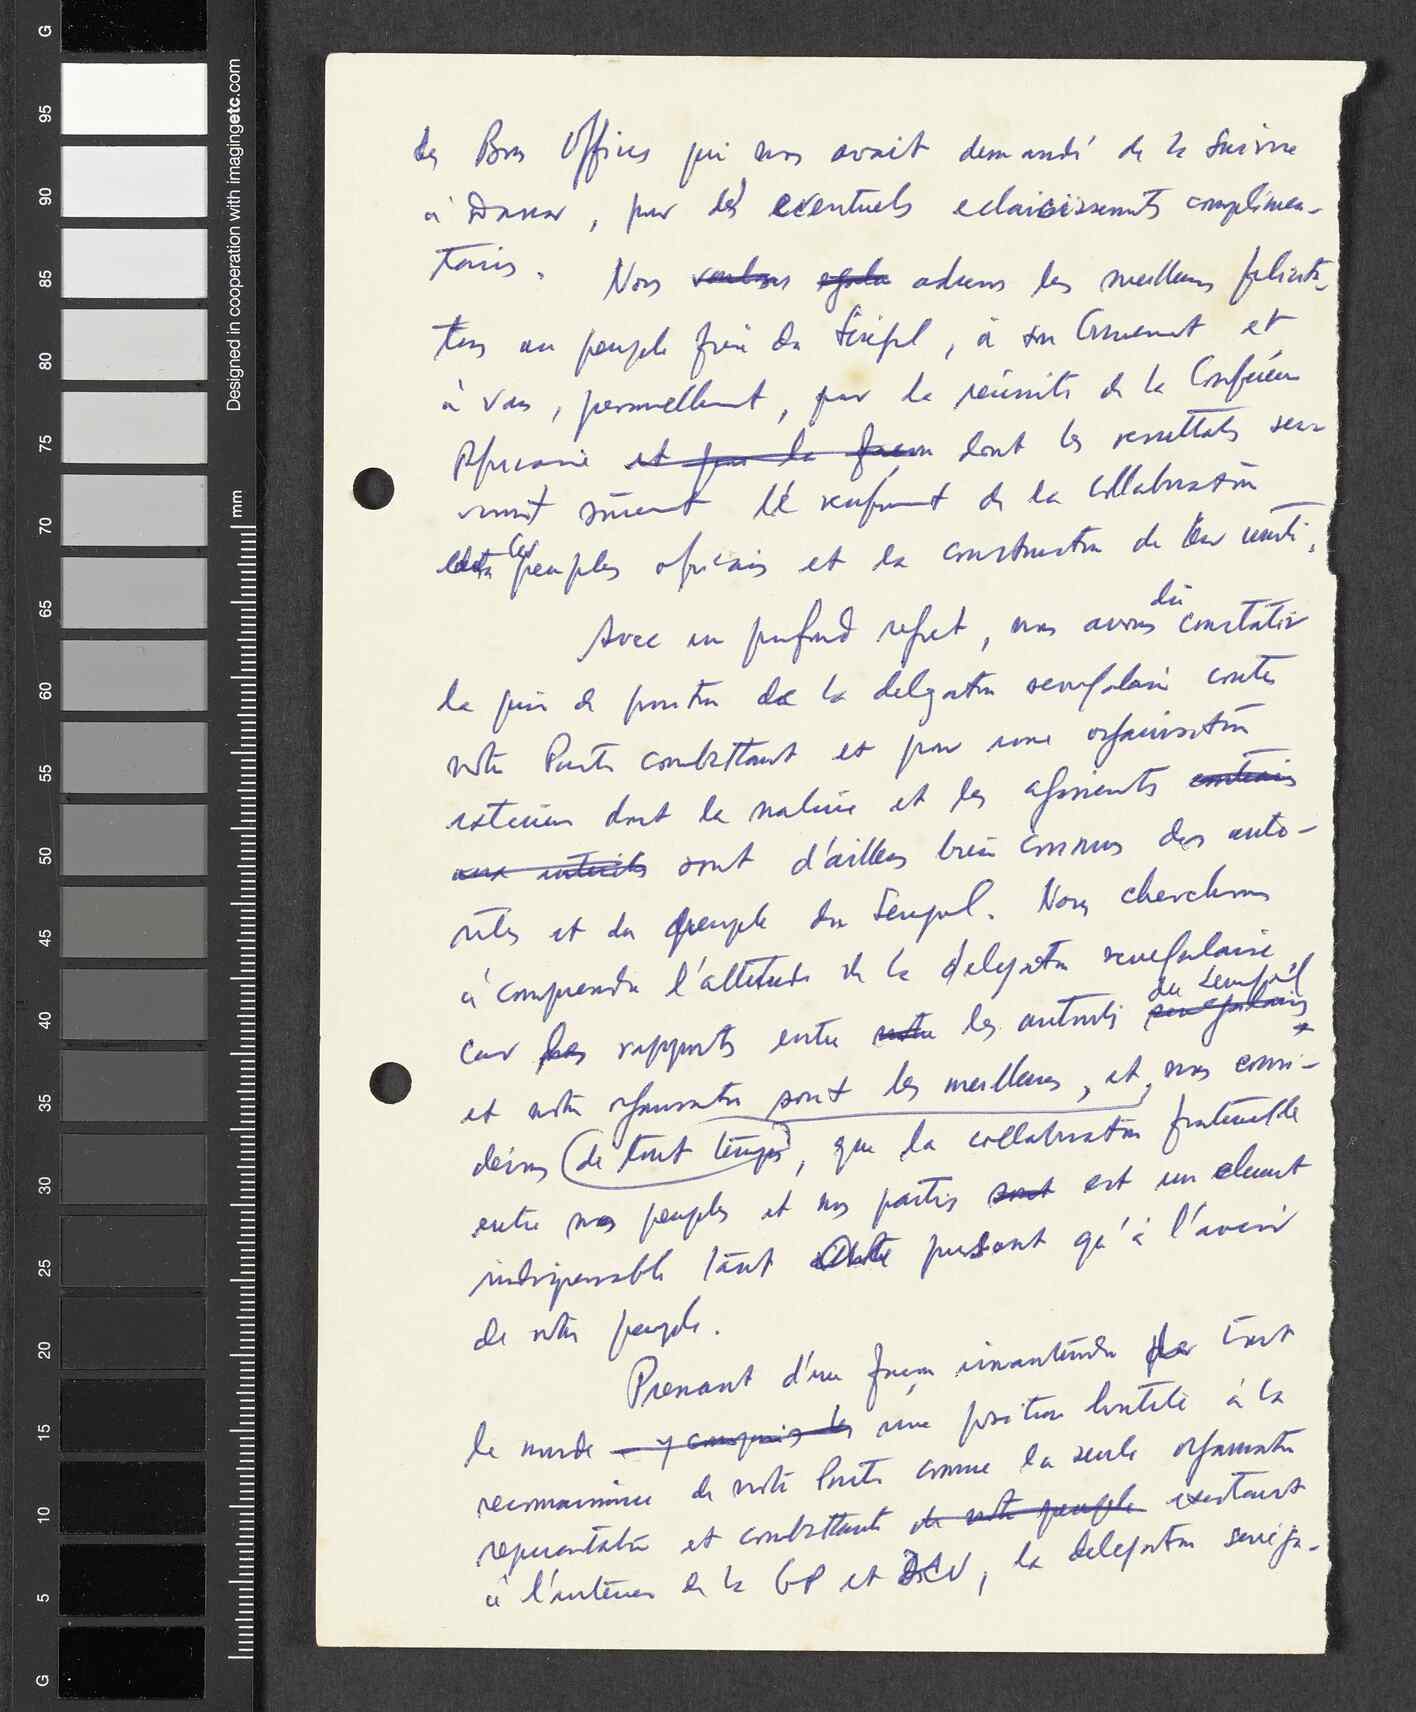 des Bons Offices qui nous avait demandé de la suivre
à Dakar, pour des eventuels eclaircissements complémen-
taires. Nous voulons adressons les meilleures félicita-
tions au peuple frère du Sénégal, à son Gouvernement et
à vous, personnellement, pour la réussite de la Conférence
Africaine et pour la façon dont les resultats ser-
viront sûrement le renforcement de la collaboration
des peuples africains et la construction de leur unité.
Avec un profond regret, nous avons dû constater
la prise de position de la delegation senegalaise contre
notre Parti combattant et pour une organisation
exterieure dont la nature et les agissements contraires
aux intérêts sont d'ailleurs bien connus des auto-
rités et du peuple du Senegal. Nous cherchons
à comprendre l'attitude de la delegation senegalaise
car les rapports entre notre les autorités senegalaises du Senegal
et notre organisation sont les meilleures, et nous consi-
derons de tout temps, que la collaboration fraternelle
entre nos peuples et nos partis sont est un element
indispensable tant présent qu'à l'avenir
de notre peuple.
Prenant d'une façon inattendue par tout
le monde – y compris les une position hostile à la
reconnaissance de notre Parti comme la seule organisation
representative et combattante de notre peuple existant
à l'intérieur de la GP et ICV, la delegation sénéga-